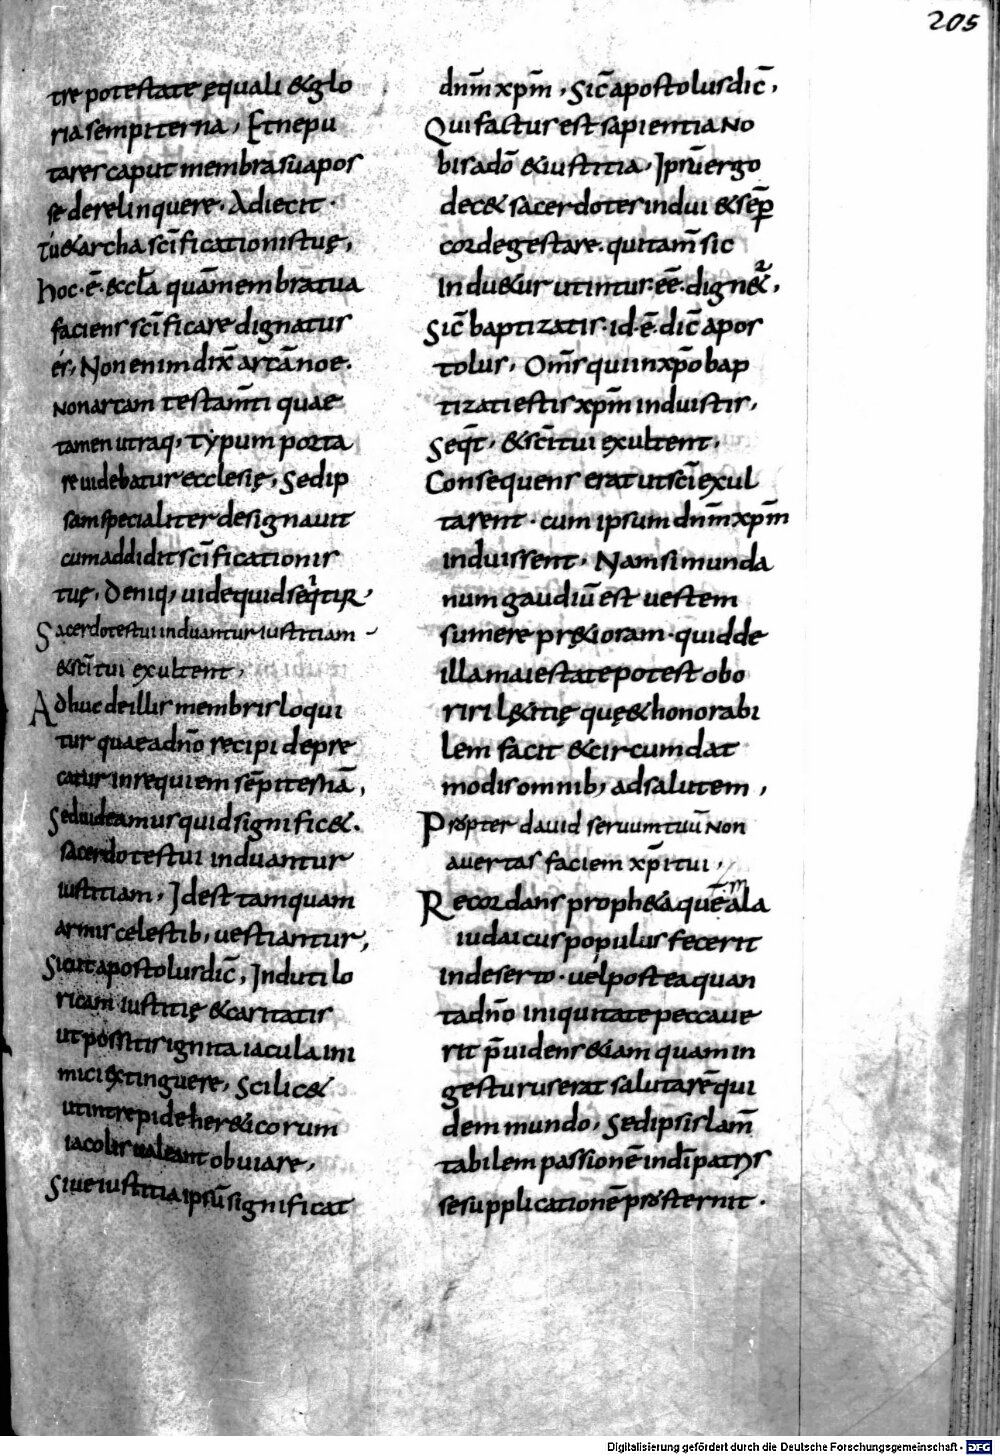 205
tre potestate ęquali & glo
ria sempiterna, Et ne pu
tares caput membra sua pos
se derelinquere. Adiecit.
tu & archa scīficationis tuę,
hoc. ē. & eccła quā membra tua
faciens scīficare dignatus
es, Non enim dix̄ arcā noe.
Non arcam testam̄ti quae
tamen utraq; typum porta
re uidebatur ecclesię, Sed ip
sam specialiter designauit
cum addidit scīficationis
tuę, Deniq; uide quid seq̄tur,
Sacerdotes tui induantur iustitiam
& sc̄i tui exultent,
Adhuc de illis membris loqui
tur quae ad dn̄o recipi depre
catur in requiem sēpiternā,
Sed uideamus quid signific&.
sacerdotes tui induantur
iustitiam, Idest tamquam
armis celestib; uestiantur,
Sicut apostolus dic̄, Induti lo
ricam iustitię & caritatis
ut possitis ignita iacula ini
mici extinguere, Scilic&
ut intrepide her&icorum
iacolis ualeant obuiare,
Siue iustitia ipsū significat
dn̄m xp̄m, Sic̄ apostolus dic̄,
Qui factus est sapientia No
bis a dō & iustitia, Ipsū ergo
dec& sacerdotes indui & sēp
corde gestare. qui tam̄ sic
indu&ur ut intus. eē. dign&,
Sic̄ baptizatis. id. ē. dic̄ apos
tolus, Om̄s qui in xp̄o bap
tizati estis xp̄m induistis,
Seq̄t, & sc̄i tui exultent,
Consequens erat ut sc̄i exul
tarent. cum ipsum dn̄m xp̄m
induissent. Nam si munda
num gaudiū est uestem
sumere pr&ioram. quid de
illa maiestate potest obo
riri l&itię quę & honorabi
lem facit & circumdat
modis omnib; ad salutem,
Propter dauid seruum tuū Non
auertas faciem xp̄i tui,
Recordans proph&a quē mala
iudaicus populus fecerit
in deserto. uel postea quan
ta dn̄o iniquitate peccaue
rit p̄uidens &iam quam in
gesturus erat salutarē qui
dem mundo, Sed ipsis lam̄
tabilem passionē indī patris
se supplicationē prosternit.
Digitalisierung gefördert durch die Deutsche Forschungsgemeinschaft - DFG